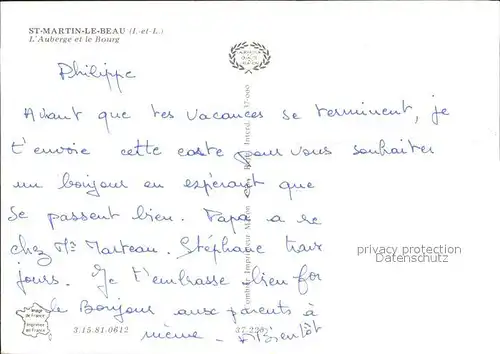 ST-MARTIN-LE-BEAU (I.-et-L.)
L'Auberge et le Bourg
Philippe
Avant que tes vacances se terminent, je
t'envoie cette carte pour vous souhaiter
un bonjour en espérant que
se passent bien. Papa a
chez Mr Marteau. Stéphane
jours. Je t'embrasse bien
le Bonjour aux parents à
même - A Bientôt
privacy protection
Datenschutz
Image de France
Imprimé en France
3.15.81.0612
Imprimeur Macon
37.226
37-000